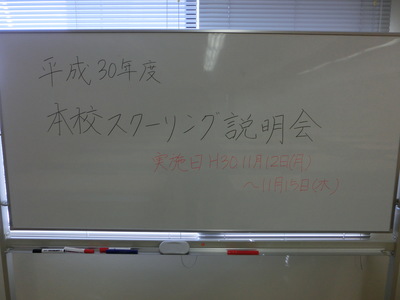 平成30年度
本校スクーリング説明会
実施日 H30.11月12日(月)
～11月15日(木)